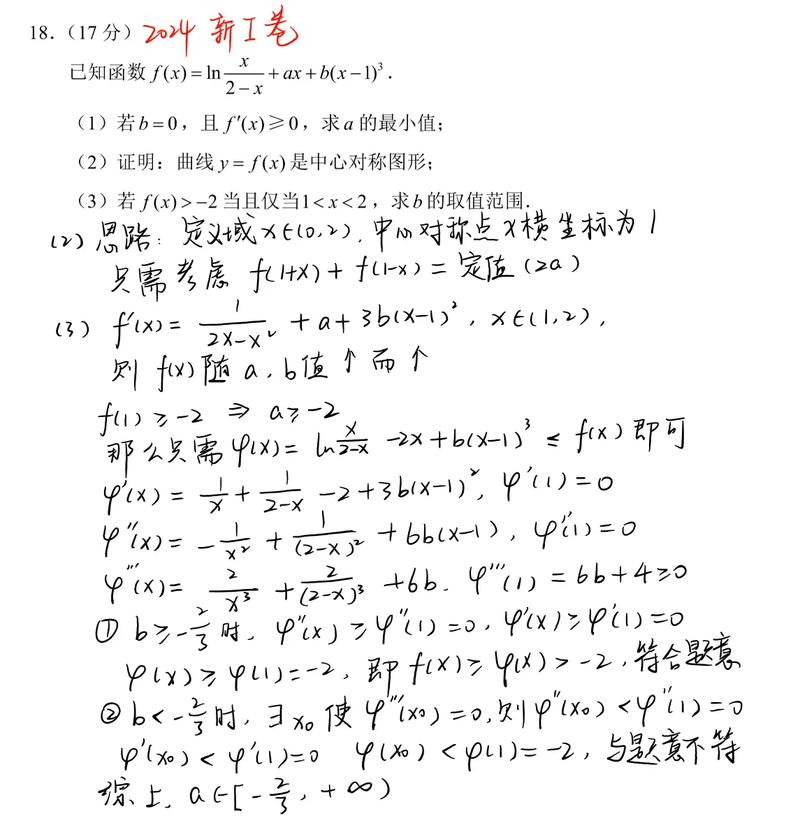 18.（17 分）2024 新 I 卷
已知函数 f(x)=ln x/(2-x) + ax + b(x-1)³.
（1）若 b=0，且 f′(x)≥0，求 a 的最小值；
（2）证明：曲线 y=f(x) 是中心对称图形；
（3）若 f(x)>-2 当且仅当 1<x<2，求 b 的取值范围.
(2) 思路：定义域 x∈(0,2)，中心对称点 x 横坐标为 1
只需考虑 f(1+x)+f(1-x)=定值(2a)
(3) f′(x)= 1/(2x-x²) + a + 3b(x-1)², x∈(1,2),
则 f(x) 随 a、b 值↑而↑
f(1)≥-2 ⇒ a≥-2
那么只需 φ(x)= ln x/(2-x) -2x+b(x-1)³ ≤ f(x) 即可
φ′(x)= 1/x + 1/(2-x) -2+3b(x-1)², φ′(1)=0
φ″(x)= -1/x² + 1/(2-x)² +6b(x-1), φ″(1)=0
φ‴(x)= 2/x³ + 2/(2-x)³ +6b. φ‴(1)=6b+4≥0
① b≥-2/3 时，φ″(x)≥φ″(1)=0, φ′(x)≥φ′(1)=0
φ(x)≥φ(1)=-2, 即 f(x)≥φ(x)>-2, 符合题意
② b<-2/3 时，∃x₀ 使 φ‴(x₀)=0, 则 φ″(x₀)<φ″(1)=0
φ′(x₀)<φ′(1)=0 φ(x₀)<φ(1)=-2, 与题意不符
综上，a∈[-2/3, +∞)